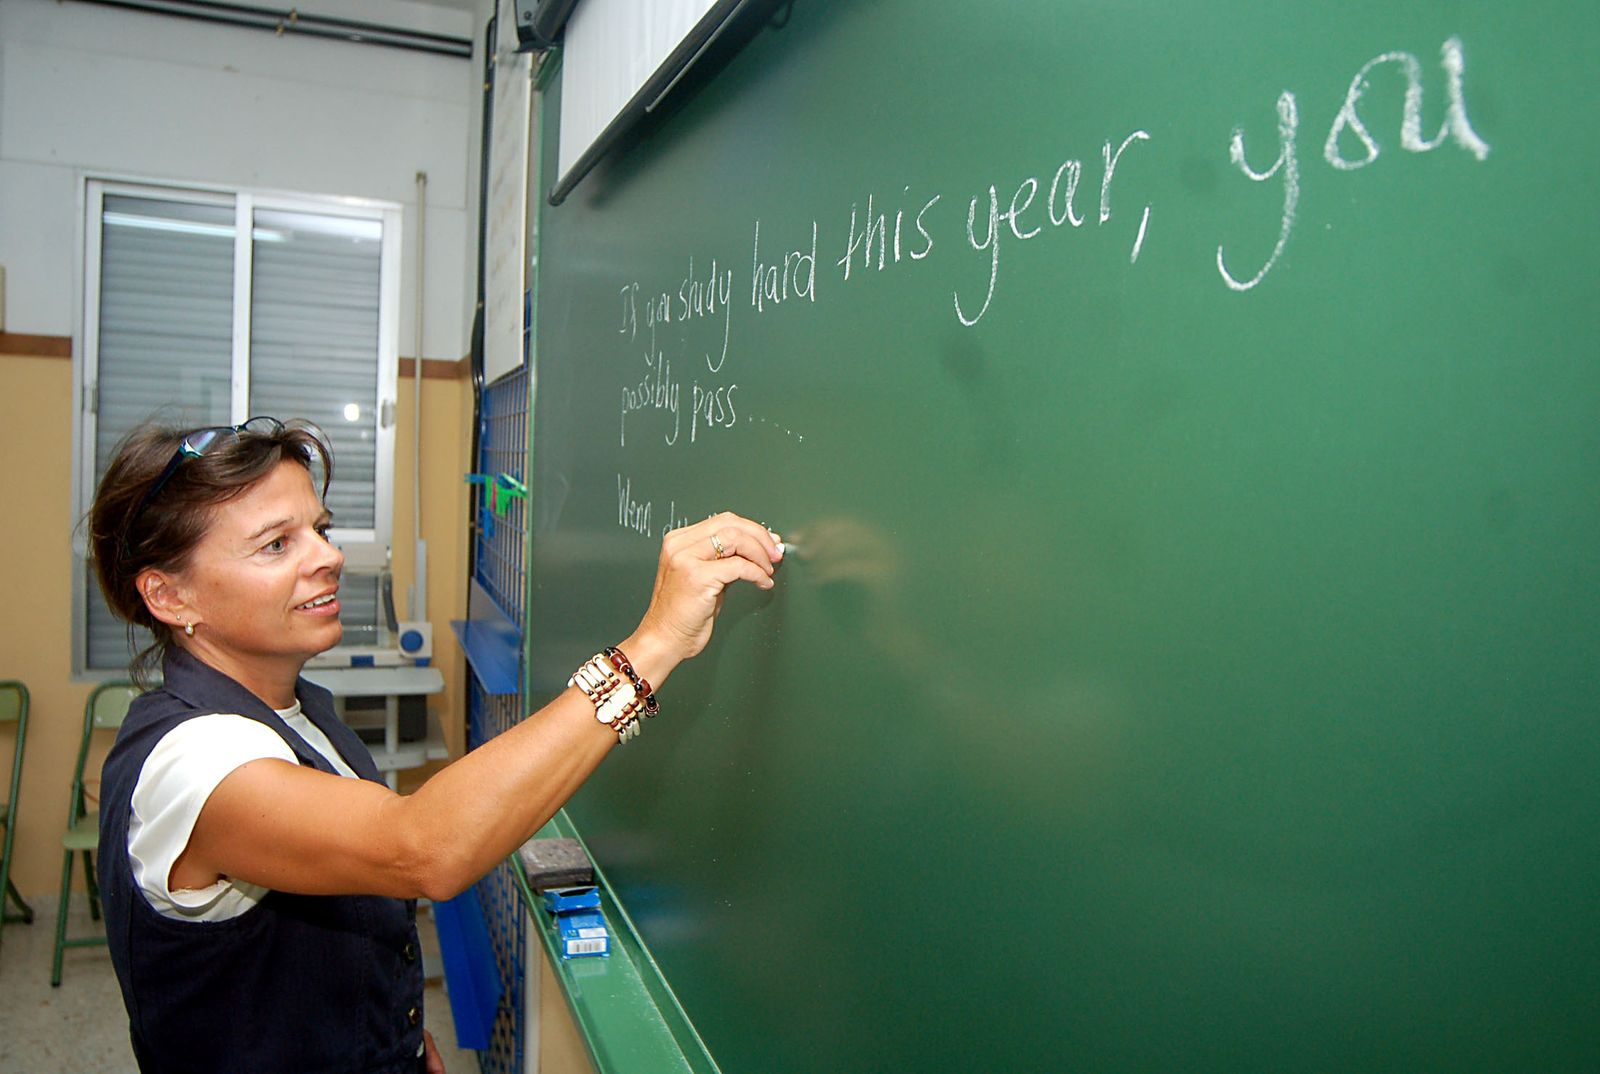 If you study hard this year, you
possibly pass ....
Wenn du